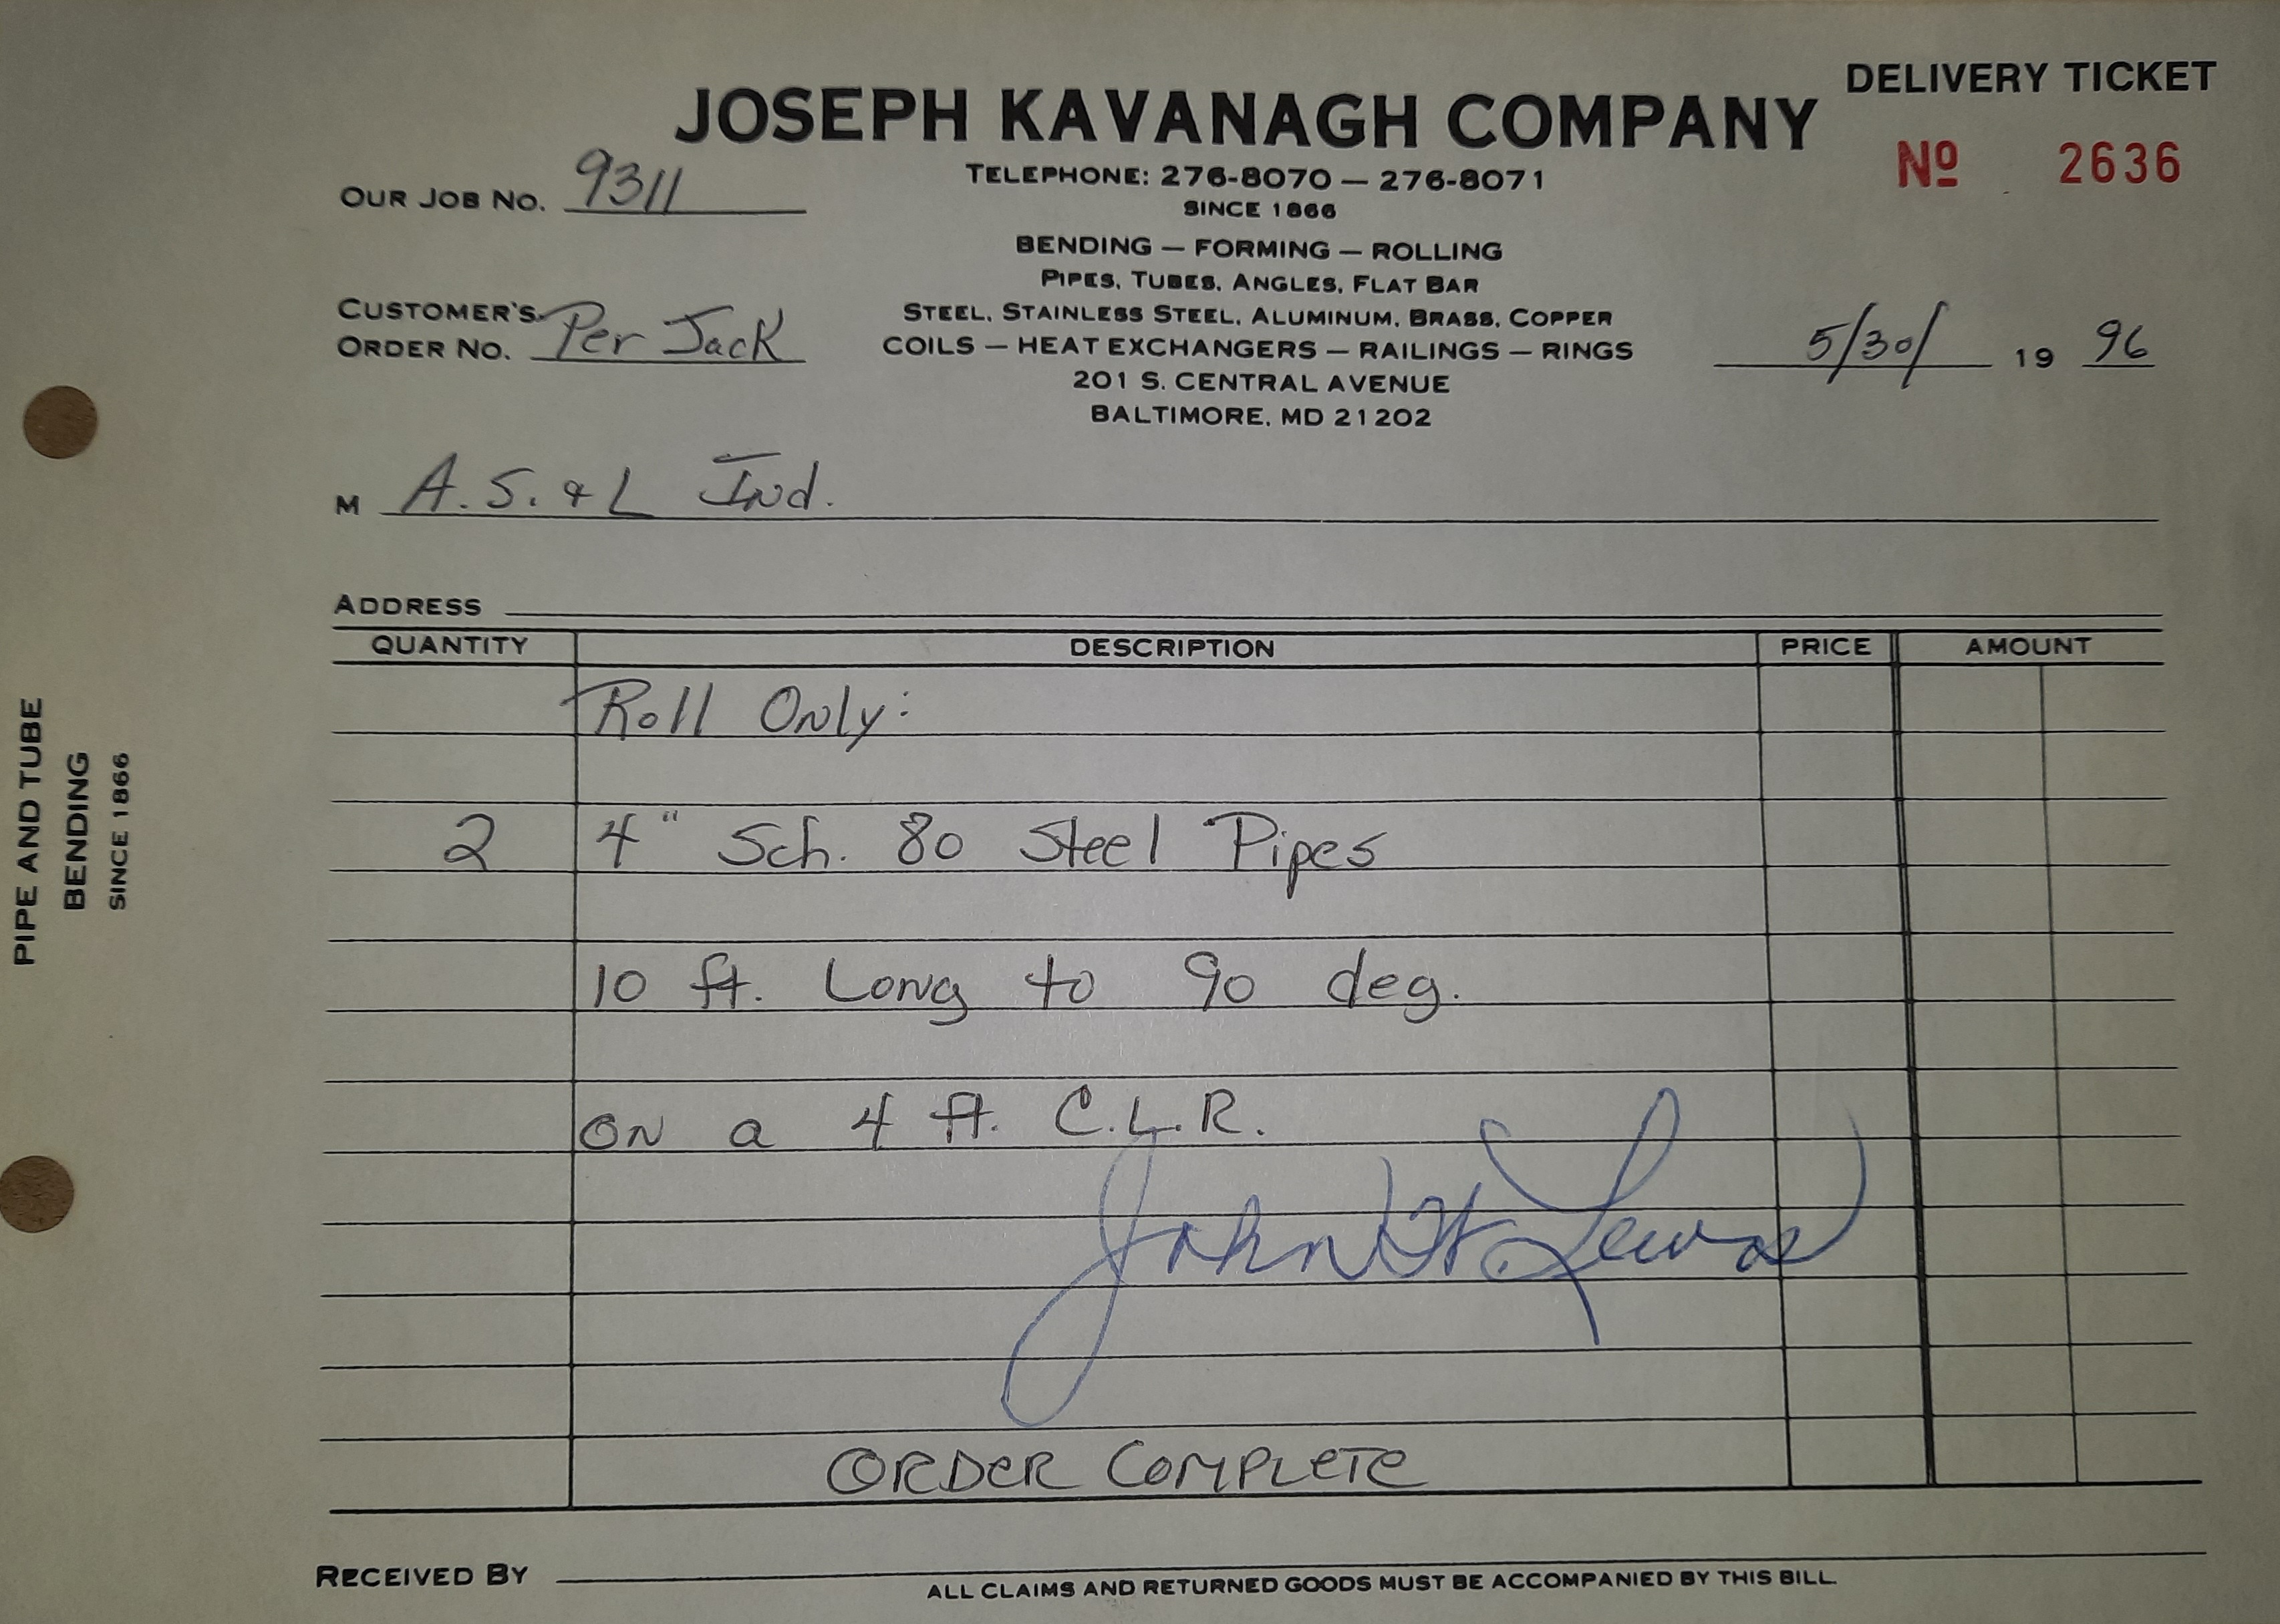 DELIVERY TICKET
JOSEPH KAVANAGH COMPANY
Nº 2636
OUR JOB NO. 9311
TELEPHONE: 276-8070 — 276-8071
SINCE 1866
BENDING — FORMING — ROLLING
PIPES, TUBES, ANGLES, FLAT BAR
CUSTOMER'S
ORDER NO. Per Jack
STEEL, STAINLESS STEEL, ALUMINUM, BRASS, COPPER
COILS — HEAT EXCHANGERS — RAILINGS — RINGS
5/30/ 19 96
201 S. CENTRAL AVENUE
BALTIMORE, MD 21202
M A. S. & L Ind.
ADDRESS
QUANTITY DESCRIPTION PRICE AMOUNT
Roll Only:
2 4" Sch. 80 Steel Pipes
10 ft. Long to 90 deg.
on a 4 ft. C.L.R.
John H. Lewis
ORDER COMPLETE
RECEIVED BY
ALL CLAIMS AND RETURNED GOODS MUST BE ACCOMPANIED BY THIS BILL.
PIPE AND TUBE
BENDING
SINCE 1866